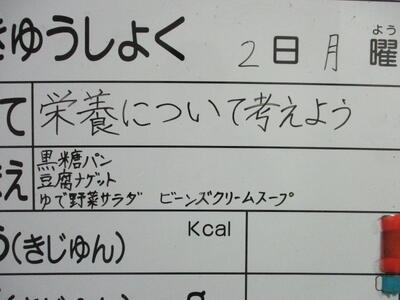 きゅうしょく 2日 月 曜
よう
て 栄養について考えよう
黒糖パン
豆腐ナゲット
え ゆで野菜サラダ ビーンズクリームスープ
Kcal
う(きじゅん)